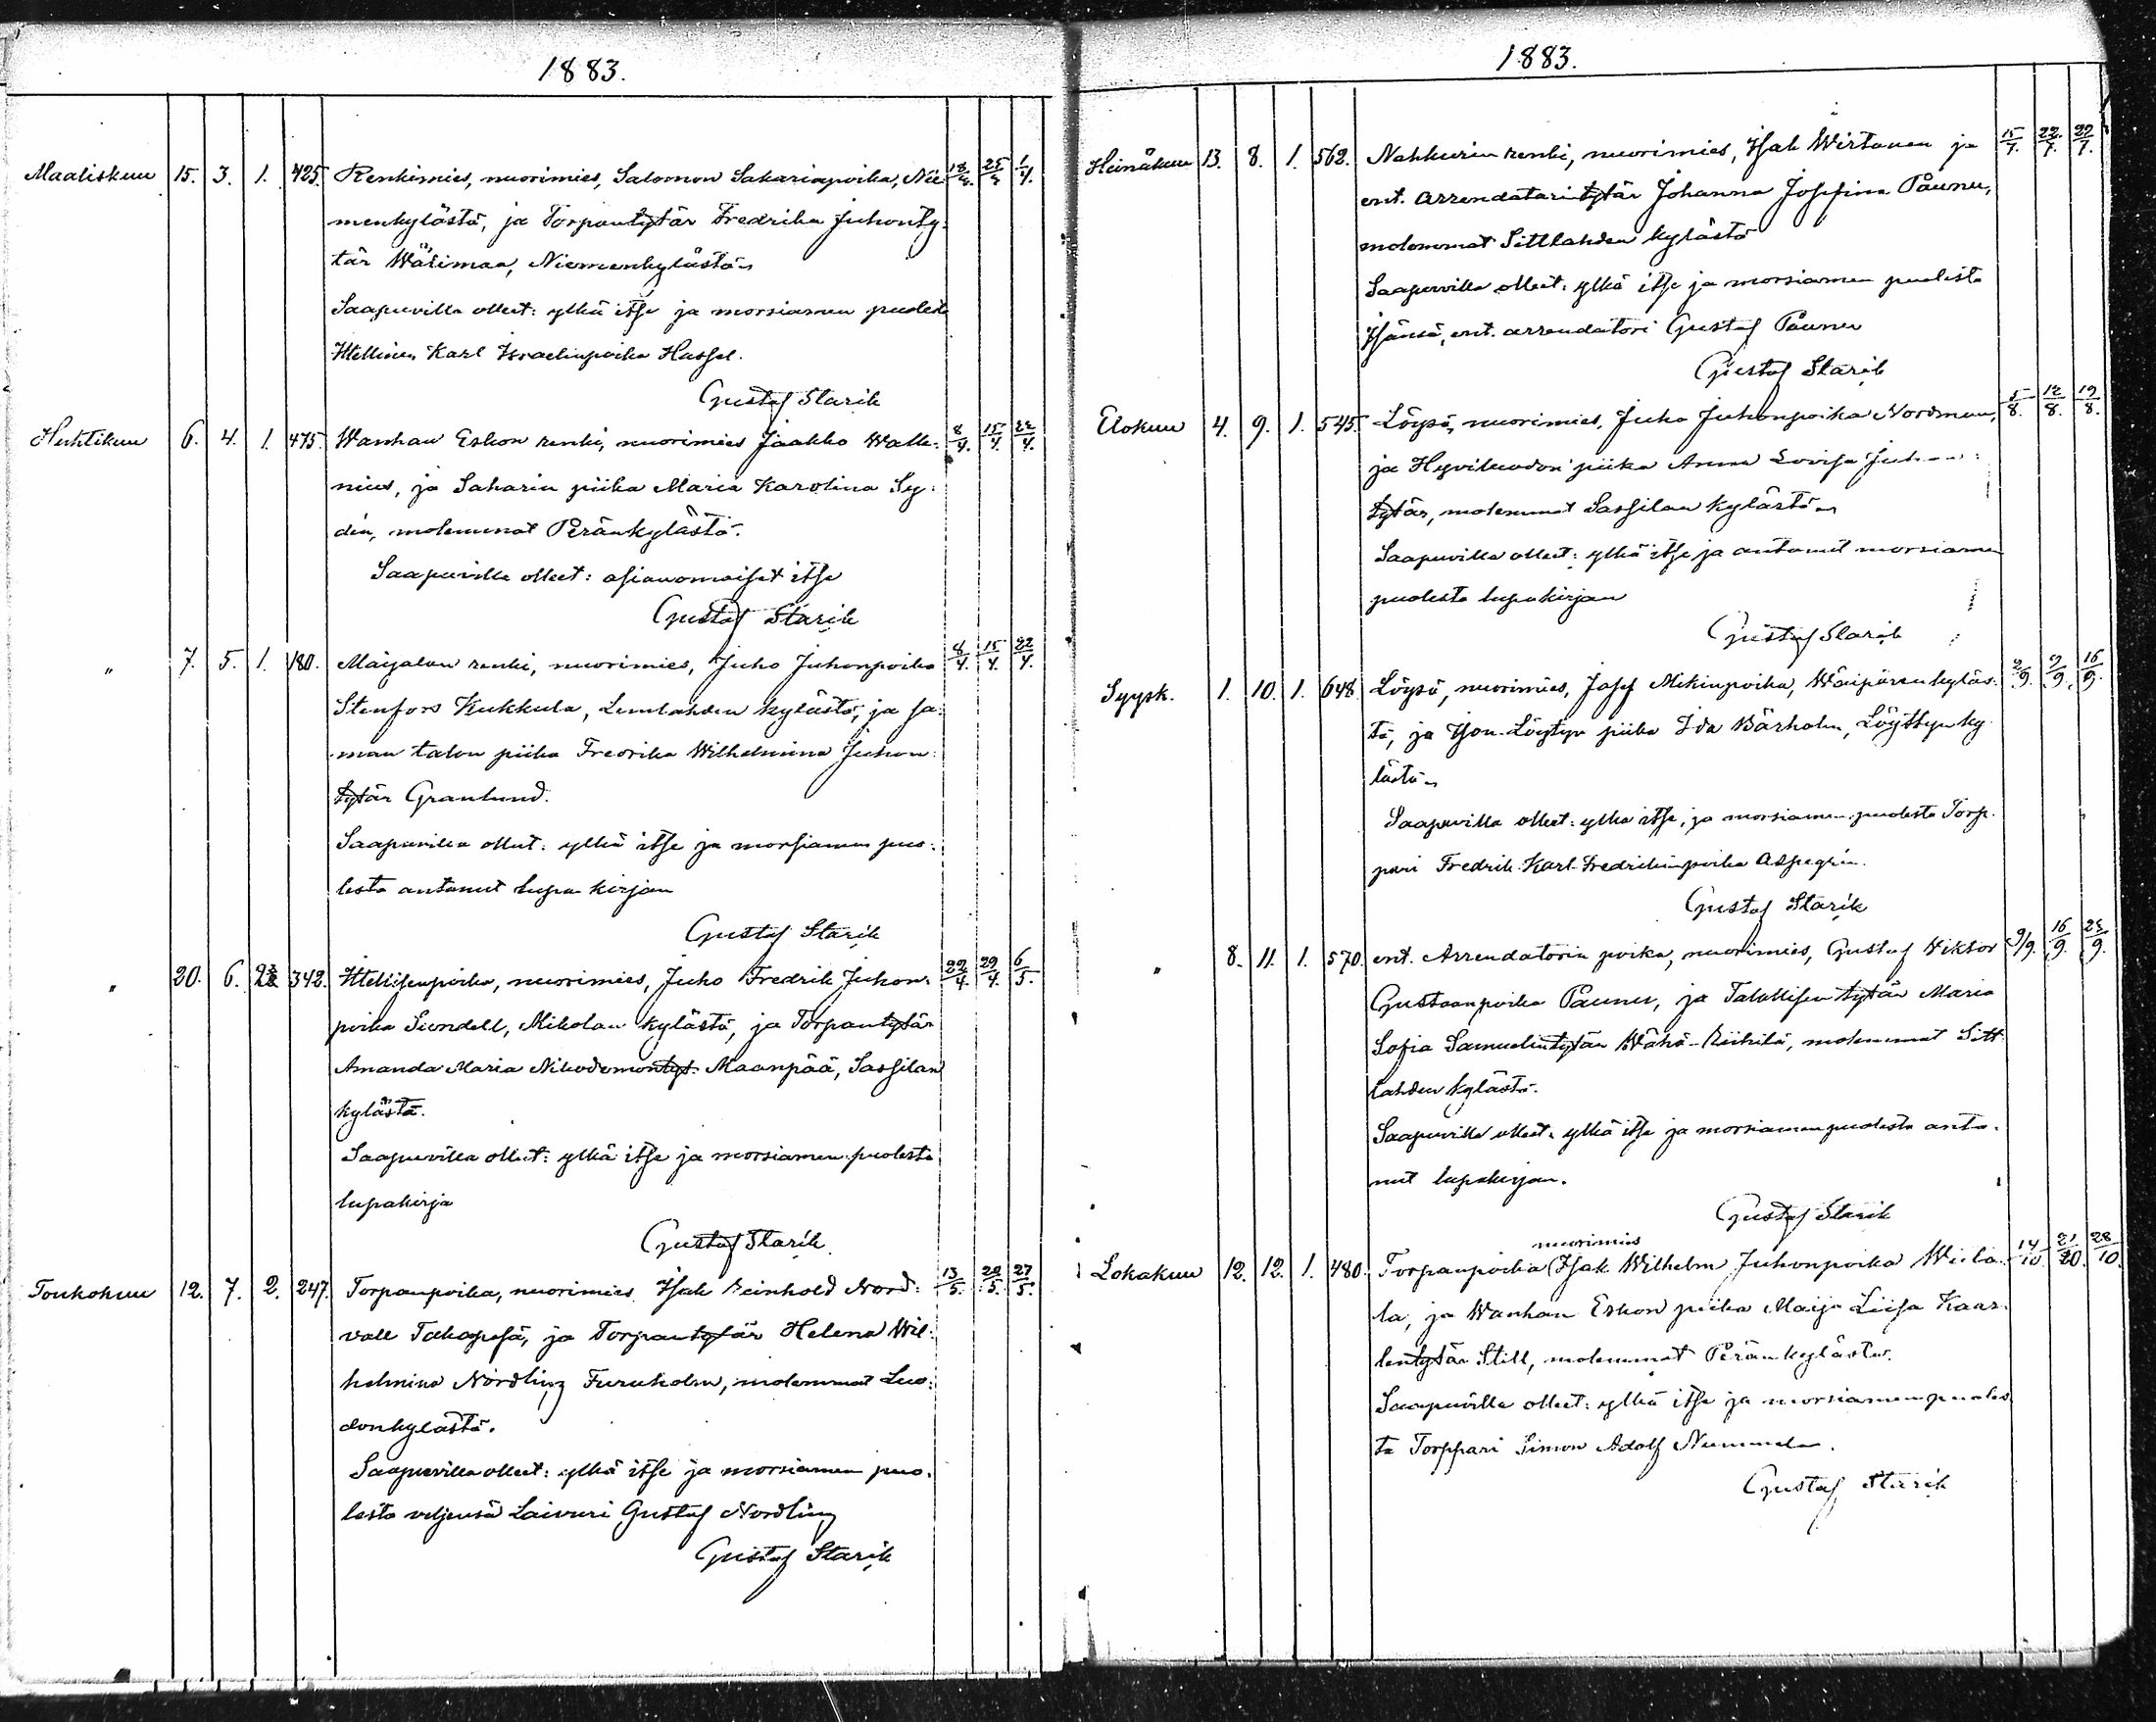 1883.
Maaliskuu 15. 3. 1. 425. Renkimies, nuorimies, Salomon Sakarianpoika, Nie- 18/3. 25/3 1/4.
menkylästä, ja Torpantytär Fredrika Juhonty-
tär Wälimaa, Niemenkylästä
Saapuvilla olleet: ylkä itse ja morsiamen puolesta
Itsellinen Karl Israelinpoika Hassel.
Gustaf Starik
Huhtikuu 6. 4. 1. 475. Wanhan Eskon renki, nuorimies Jaakko Walle- 8/4. 15/4. 22/4.
nius, ja Saharin piika Maria Karolina Sy-
dén, molemmat Peränkylästä.
Saapuvilla olleet: asianomaiset itse
Gustaf Starik
" 7. 5. 1. 180. Maijalan renki, nuorimies, Juho Juhonpoika 8/4. 15/4. 22/4.
Stenfors Kukkula, Lemlahden kylästä, ja sa-
man talon piika Fredrika Wilhelmina Juhon-
tytär Granlund.
Saapuvilla ollut: ylkä itse ja morsiamen puo-
lesta antanut lupakirjan
Gustaf Starik
" 20. 6. 342. Itsellisenpoika, nuorimies, Juho Fredrik Juhon- 22/4. 29/4. 6/5.
poika Sundell, Mikolan kylästä, ja Torpantytär
Amanda Maria Nikodemontyt. Maanpää, Sassilan
kylästä.
Saapuvilla ollut: ylkä itse ja morsiamen puolesta
lupakirja
Gustaf Starik
Toukokuu 12. 7. 2. 247. Torpanpoika, nuorimies, Isak Reinhold Nord- 13/5. 20/5. 27/5.
vall Takapesä, ja Torpantytär Helena Wil-
helmina Nordling Furuholm, molemmat Luo-
donkylästä.
Saapuvilla olleet: ylkä itse ja morsiamen puo-
lesta veljensä Laivuri Gustaf Nordling
Gustaf Starik
1883.
Heinäkuu 13. 8. 1. 562. Nahkurin renki, nuorimies, Isak Wirtanen ja 15/7. 22/7. 29/7.
ent. arrendatorintytär Johanna Josefina Påunu,
molemmat Sittlahden kylästä
Saapuvilla olleet: ylkä itse ja morsiamen puolesta
Isänsä, ent. arrendatori Gustaf Påunu
Gustaf Starik
Elokuu 4. 9. 1. 545. Löysä, nuorimies, Juho Juhonpoika Nordman, 5/8. 12/8. 19/8.
ja Hyviluodon piika Anna Lovisa Juhon-
tytär, molemmat Sassilan kylästä
Saapuvilla olleet: ylkä itse ja antanut morsiamen
puolesta lupakirjan
Gustaf Starik
Syysk. 1. 10. 1. 648. Löysä, nuorimies, Josef Mikinpoika, Wäipären kyläs- 2/9. 9/9. 16/9.
tä, ja Ison-Löytyn piika Ida Bärholm, Löyttyn ky-
lästä
Saapuvilla olleet: ylkä itse, ja morsiamen puolesta Torp-
pari Fredrik Karl Fredrikinpoika Aspegrén.
Gustaf Starik
" 8. 11. 1. 570. ent. Arrendatorin poika, nuorimies, Gustaf Wiktor 9/9. 16/9. 23/9.
Gustaanpoika Påunu, ja Talollisen tytär Maria
Sofia Samuelintytär Wähä-Riihilä, molemmat Sitt-
lahden kylästä.
Saapuvilla olleet: ylkä itse ja morsiamen puolesta anta-
nut lupakirjan.
Gustaf Starik
nuorimies
Lokakuu 12. 12. 1. 480. Torpanpoika Isak Wilhelm Juhonpoika 14/10 21/20. 28/10.
la, ja Wanhan Eskon piika Maija Liisa Kaar-
lentytär Still, molemmat Peränkylästä.
Saapuvilla olleet: ylkä itse ja morsiamen puoles-
ta Torppari Simon Adolf Nummela.
Gustaf Starik